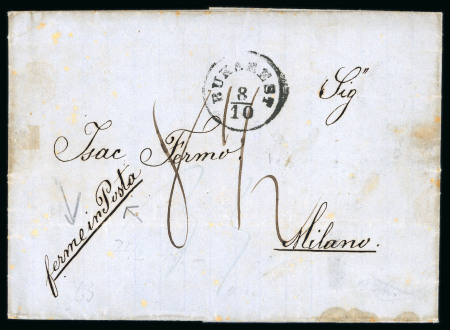 BUKAREST
8/10
Sigʳ
Isac Fermo.
ferme in Posta
Milano.